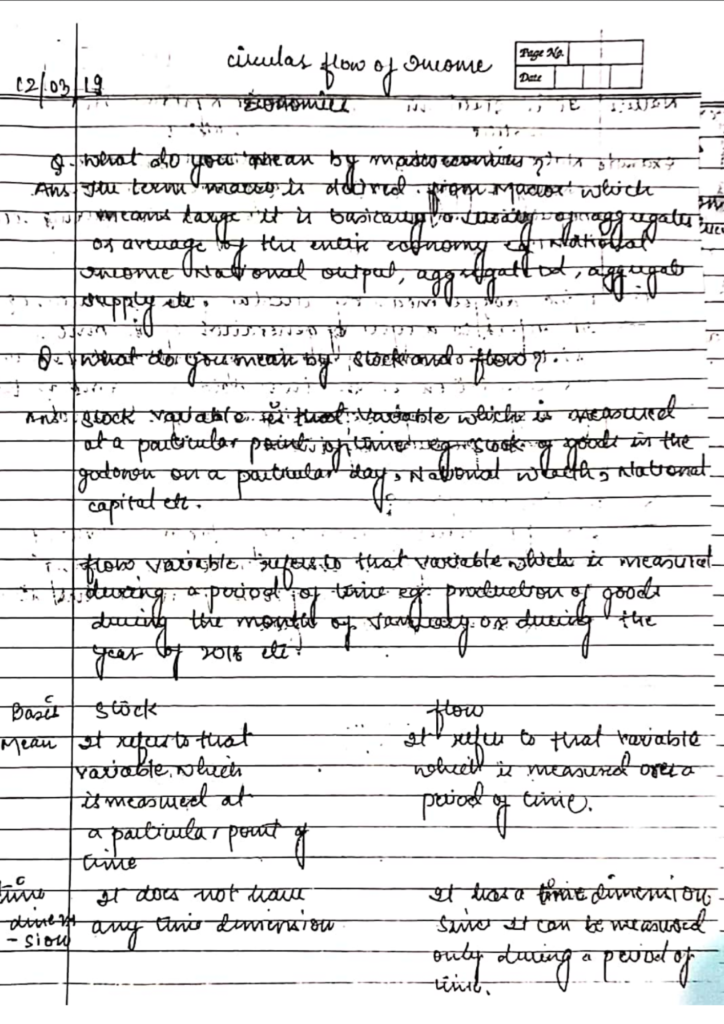 circular flow of Income
Page No.
Date
12/03/19
Economics
Q. What do you mean by macroeconomics ?
Ans The term macro is derived from Macros which
means large it is basically a study of aggregates
or average of the entire economy eg. National
Income National output, aggregate dd, aggregate
supply etc.
Q. What do you mean by stock and flow ?
Ans: Stock variable is that variable which is measured
at a particular point of time eg. stock of goods in the
godown on a particular day, National wealth, National
capital etc.
flow variable refers to that variable which is measured
during a period of time eg. production of goods
during the month of January or during the
year of 2018 etc.
Basis Stock flow
Mean It refers to that It refers to that variable
variable which which is measured over a
is measured at period of time.
a particular point of
time
time It does not have It has a time dimension
dimen any time dimension Since it can be measured
-sion only during a period of
time.